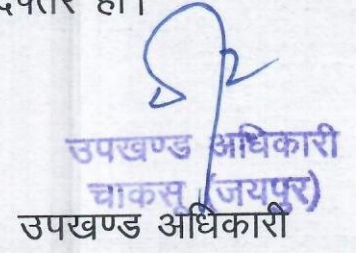 दफ्तर हो।
उपखण्ड अधिकारी
चाकसू (जयपुर)
उपखण्ड अधिकारी